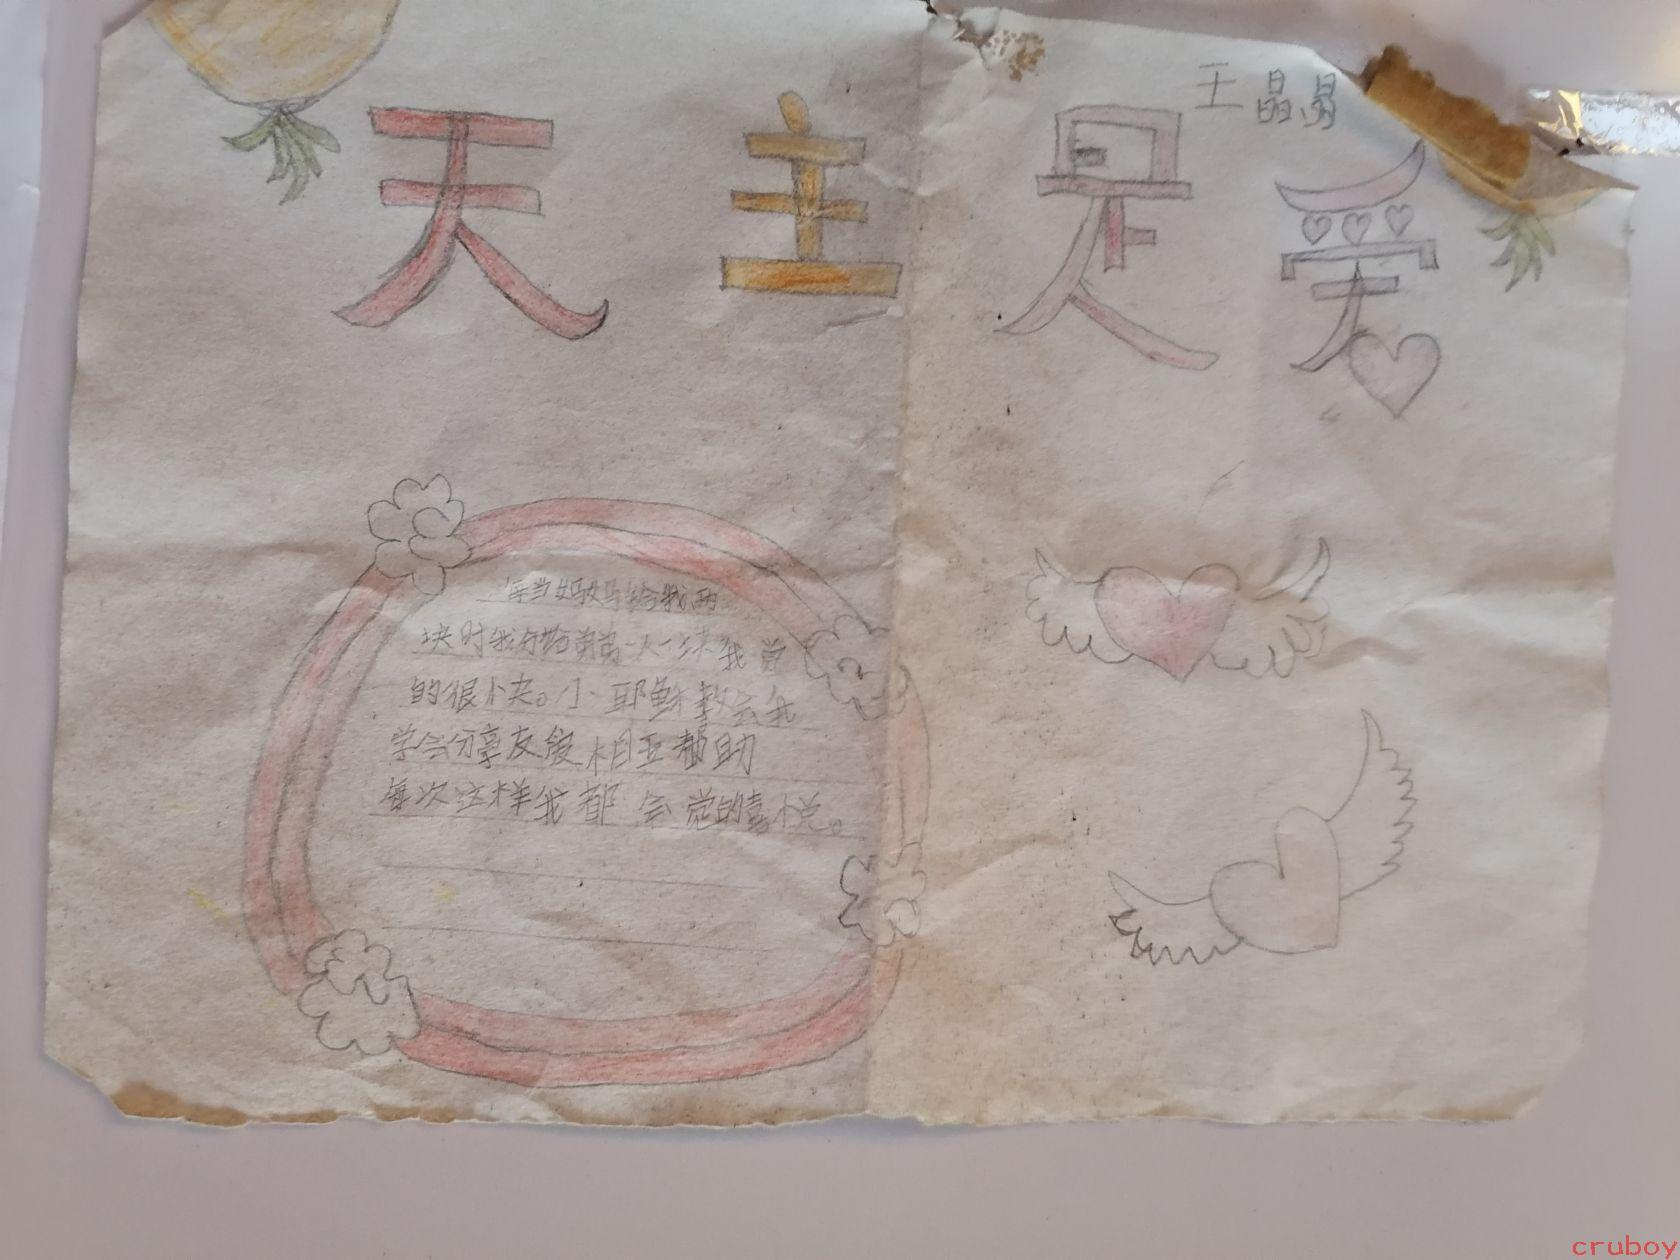 王晶晶
天主是爱
每当妈妈给我两
块时我分给弟弟一人一块我觉
的很快。小耶稣教会我
学会分享友爱相互帮助
每次这样我都会觉的喜悦。
cruboy